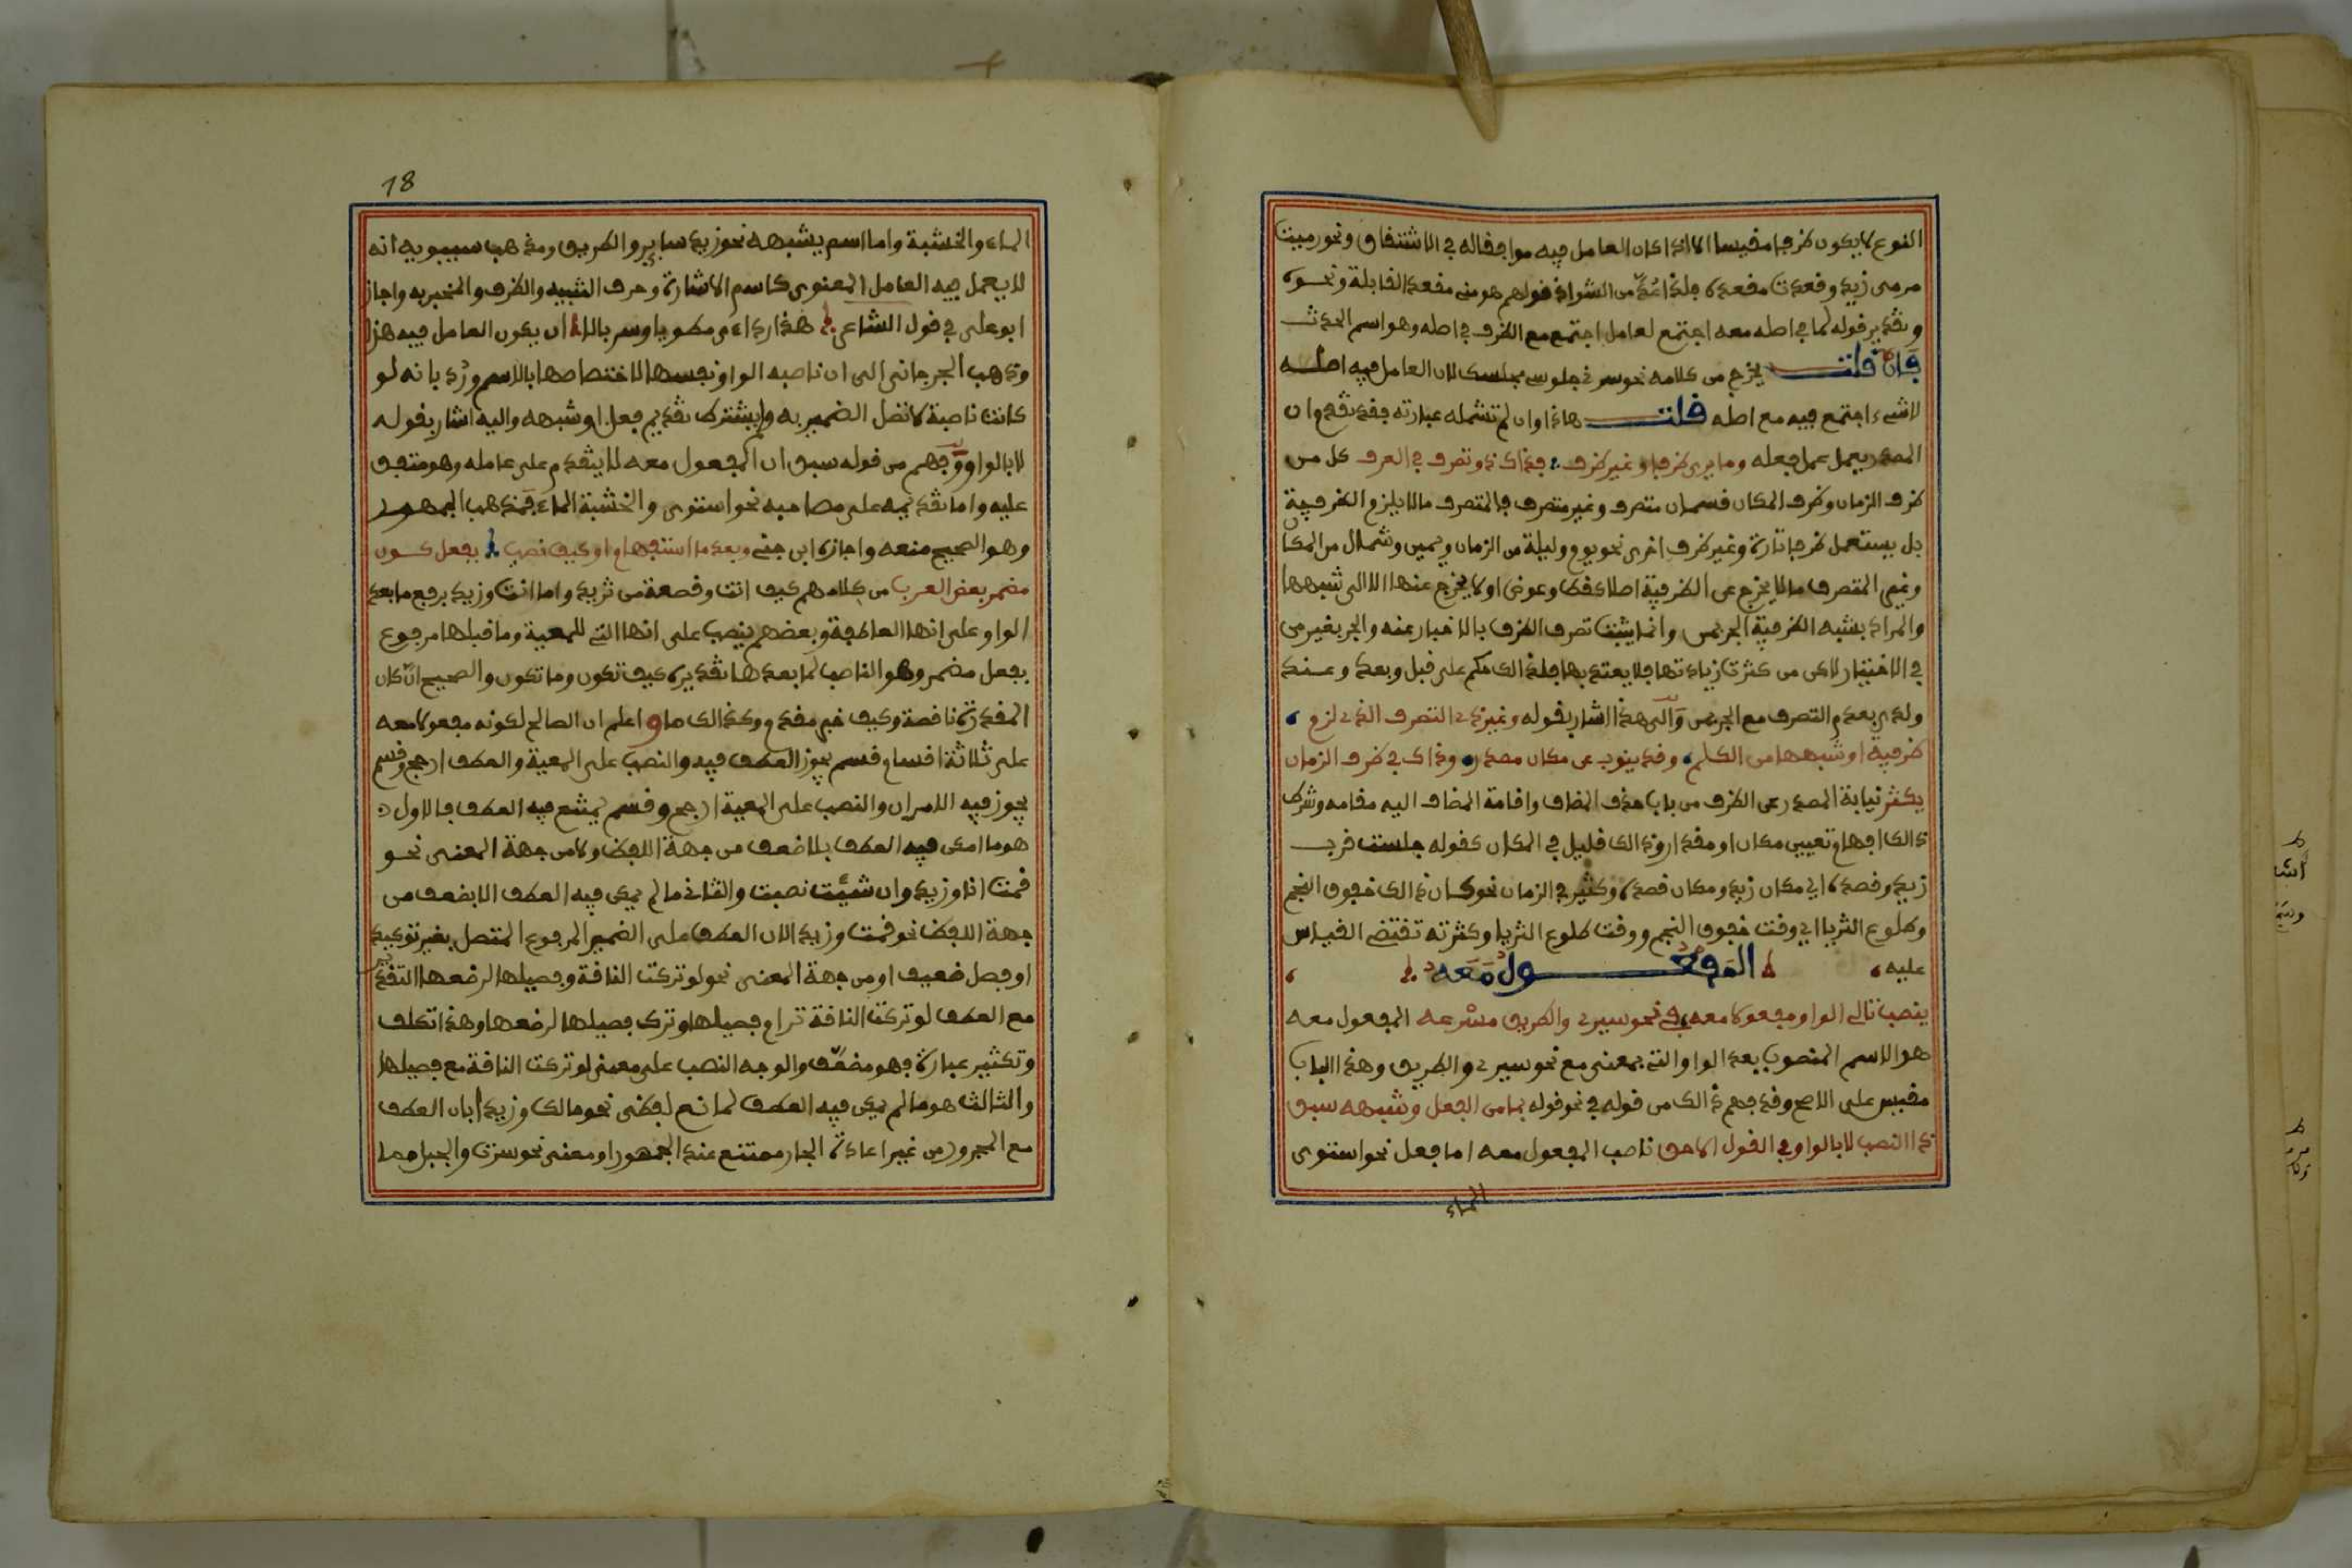 النوع لا يكون ظرفا مقيسا الا اذا كان العامل فيه موافقا له في الاشتقاق ونحو رميت
مرمى زيد وقعدت مقعده فلذا عُدّ من الشواذ قولهم هو مني مقعد القابلة ونحوه
وتقدير قوله لما في اصله معه اجتمع لعامل اجتمع مع الظرف في اصله وهو اسم الحدث
فان قلت يخرج من كلامه نحو سرني جلوسي مجلسك لان العامل فيه اصله
لا شيء اجتمع فيه مع اصله قلت هاذا وان لم تشمله عبارته فقد تقدم ان
المصدر يعمل عمل فعله وما يرى ظرفا وغير ظرف فذاك ذو تصرف في العرف كل من
ظرف الزمان وظرف المكان قسمان متصرف وغير متصرف فالمتصرف ما لا يلزم الظرفية
بل يستعمل ظرفا تارة وغير ظرف اخرى نحو يوم وليلة من الزمان ويمين وشمال من المكان
وغير المتصرف ما لا يخرج عن الظرفية اصلا كقط وعوض او لا يخرج عنها الا الى شبهها
والمراد بشبه الظرفية الجر بمن وانما يثبت تصرف الظرف بالاخبار عنه والجر بغير من
في الاختيار لان من كثرت زيادتها فلا يعتد بها فلذالك حكم على قبل وبعد وعند
ولدى بعدم التصرف مع الجر بمن والى هذا اشار بقوله وغير ذي التصرف الذي لزم
ظرفية او شبهها من الكلم وقد ينوب عن مكان مصدر وذاك في ظرف الزمان
يكثر نيابة المصدر عن الظرف من باب حذف المضاف واقامة المضاف اليه مقامه وشرط
ذالك افهام تعيين مكان او مقدار وذالك قليل في المكان كقوله جلست قرب
زيد وقصده اي مكان زيد ومكان قصده وكثير في الزمان نحو كان ذالك خفوق النجم
وطلوع الثريا اي وقت خفوق النجم ووقت طلوع الثريا وكثرته تقتضي القياس
عليه
المفعول معه
ينصب تالي الواو مفعولا معه في نحو سيري والطريق مسرعه المفعول معه
هو الاسم المنصوب بعد الواو التي بمعنى مع نحو سيري والطريق وهذا الباب
مقيس على الاصح وقد فهم ذالك من قوله في نحو قوله بما من الفعل وشبهه سبق
ذا النصب لا بالواو في القول الاحق ناصب المفعول معه اما فعل نحو استوى
الماء
18
الماء والخشبة واما اسم يشبهه نحو زيد ساير والطريق ومذهب سيبويه انه
لا يعمل فيه العامل المعنوي كاسم الاشارة وحرف التنبيه والظرف والمخبر به واجاز
ابو علي في قول الشاعر هذا رداءي مطويا وسربالا ان يكون العامل فيه هذا
وذهب الجرجاني الى ان ناصبه الواو نفسها لاختصاصها بالاسم ورُد بانه لو
كانت ناصبة لاتصل الضمير به ولم يشترط تقديم فعل او شبهه واليه اشار بقوله
لا بالواو وفهم من قوله سبق ان المفعول معه لا يتقدم على عامله وهو متفق
عليه واما تقديمه على مصاحبه نحو استوى والخشبة الماء فمذهب الجمهور
وهو الصحيح منعه واجازه ابن جني وبعد ما استفهام او كيف نصب بفعل كون
مضمر بعض العرب من كلامهم كيف انت وقصعة من ثريد وما انت وزيد برفع ما بعد
الواو على انها العاطفة وبعضهم ينصب على انها التي للمعية وما قبلها مرفوع
بفعل مضمر وهو الناصب لما بعدها تقديره كيف تكون وما تكون والصحيح ان كان
المقدرة ناقصة وكيف خبر مقدم وكذالك ما واعلم ان الصالح لكونه مفعولا معه
على ثلاثة اقسام قسم يجوز العطف فيه والنصب على المعية والعطف ارجح وقسم
يجوز فيه الامران والنصب على المعية ارجح وقسم يمتنع فيه العطف فالاول
هو ما امكن فيه العطف بلا ضعف من جهة اللفظ ولا من جهة المعنى نحو
قمت انا وزيد وان شئت نصبت والثاني ما لم يمكن فيه العطف الا بضعف من
جهة اللفظ نحو قمت وزيد الان العطف على الضمير المرفوع المتصل بغير توكيد
او فصل ضعيف او من جهة المعنى نحو لو تركت الناقة وفصيلها لرضعها التقدير
مع العطف لو تركت الناقة ترام فصيلها وترك فصيلها لرضعها وهذا تكلف
وتكثير عبارة فهو مضعّف والوجه النصب على معنى لو تركت الناقة مع فصيلها
والثالث هو ما لم يمكن فيه العطف لمانع لفظي نحو ما لك وزيدا بان العطف
مع المجرور من غير اعادة الجار ممتنع عند الجمهور او معنى نحو سرت والجبل مما